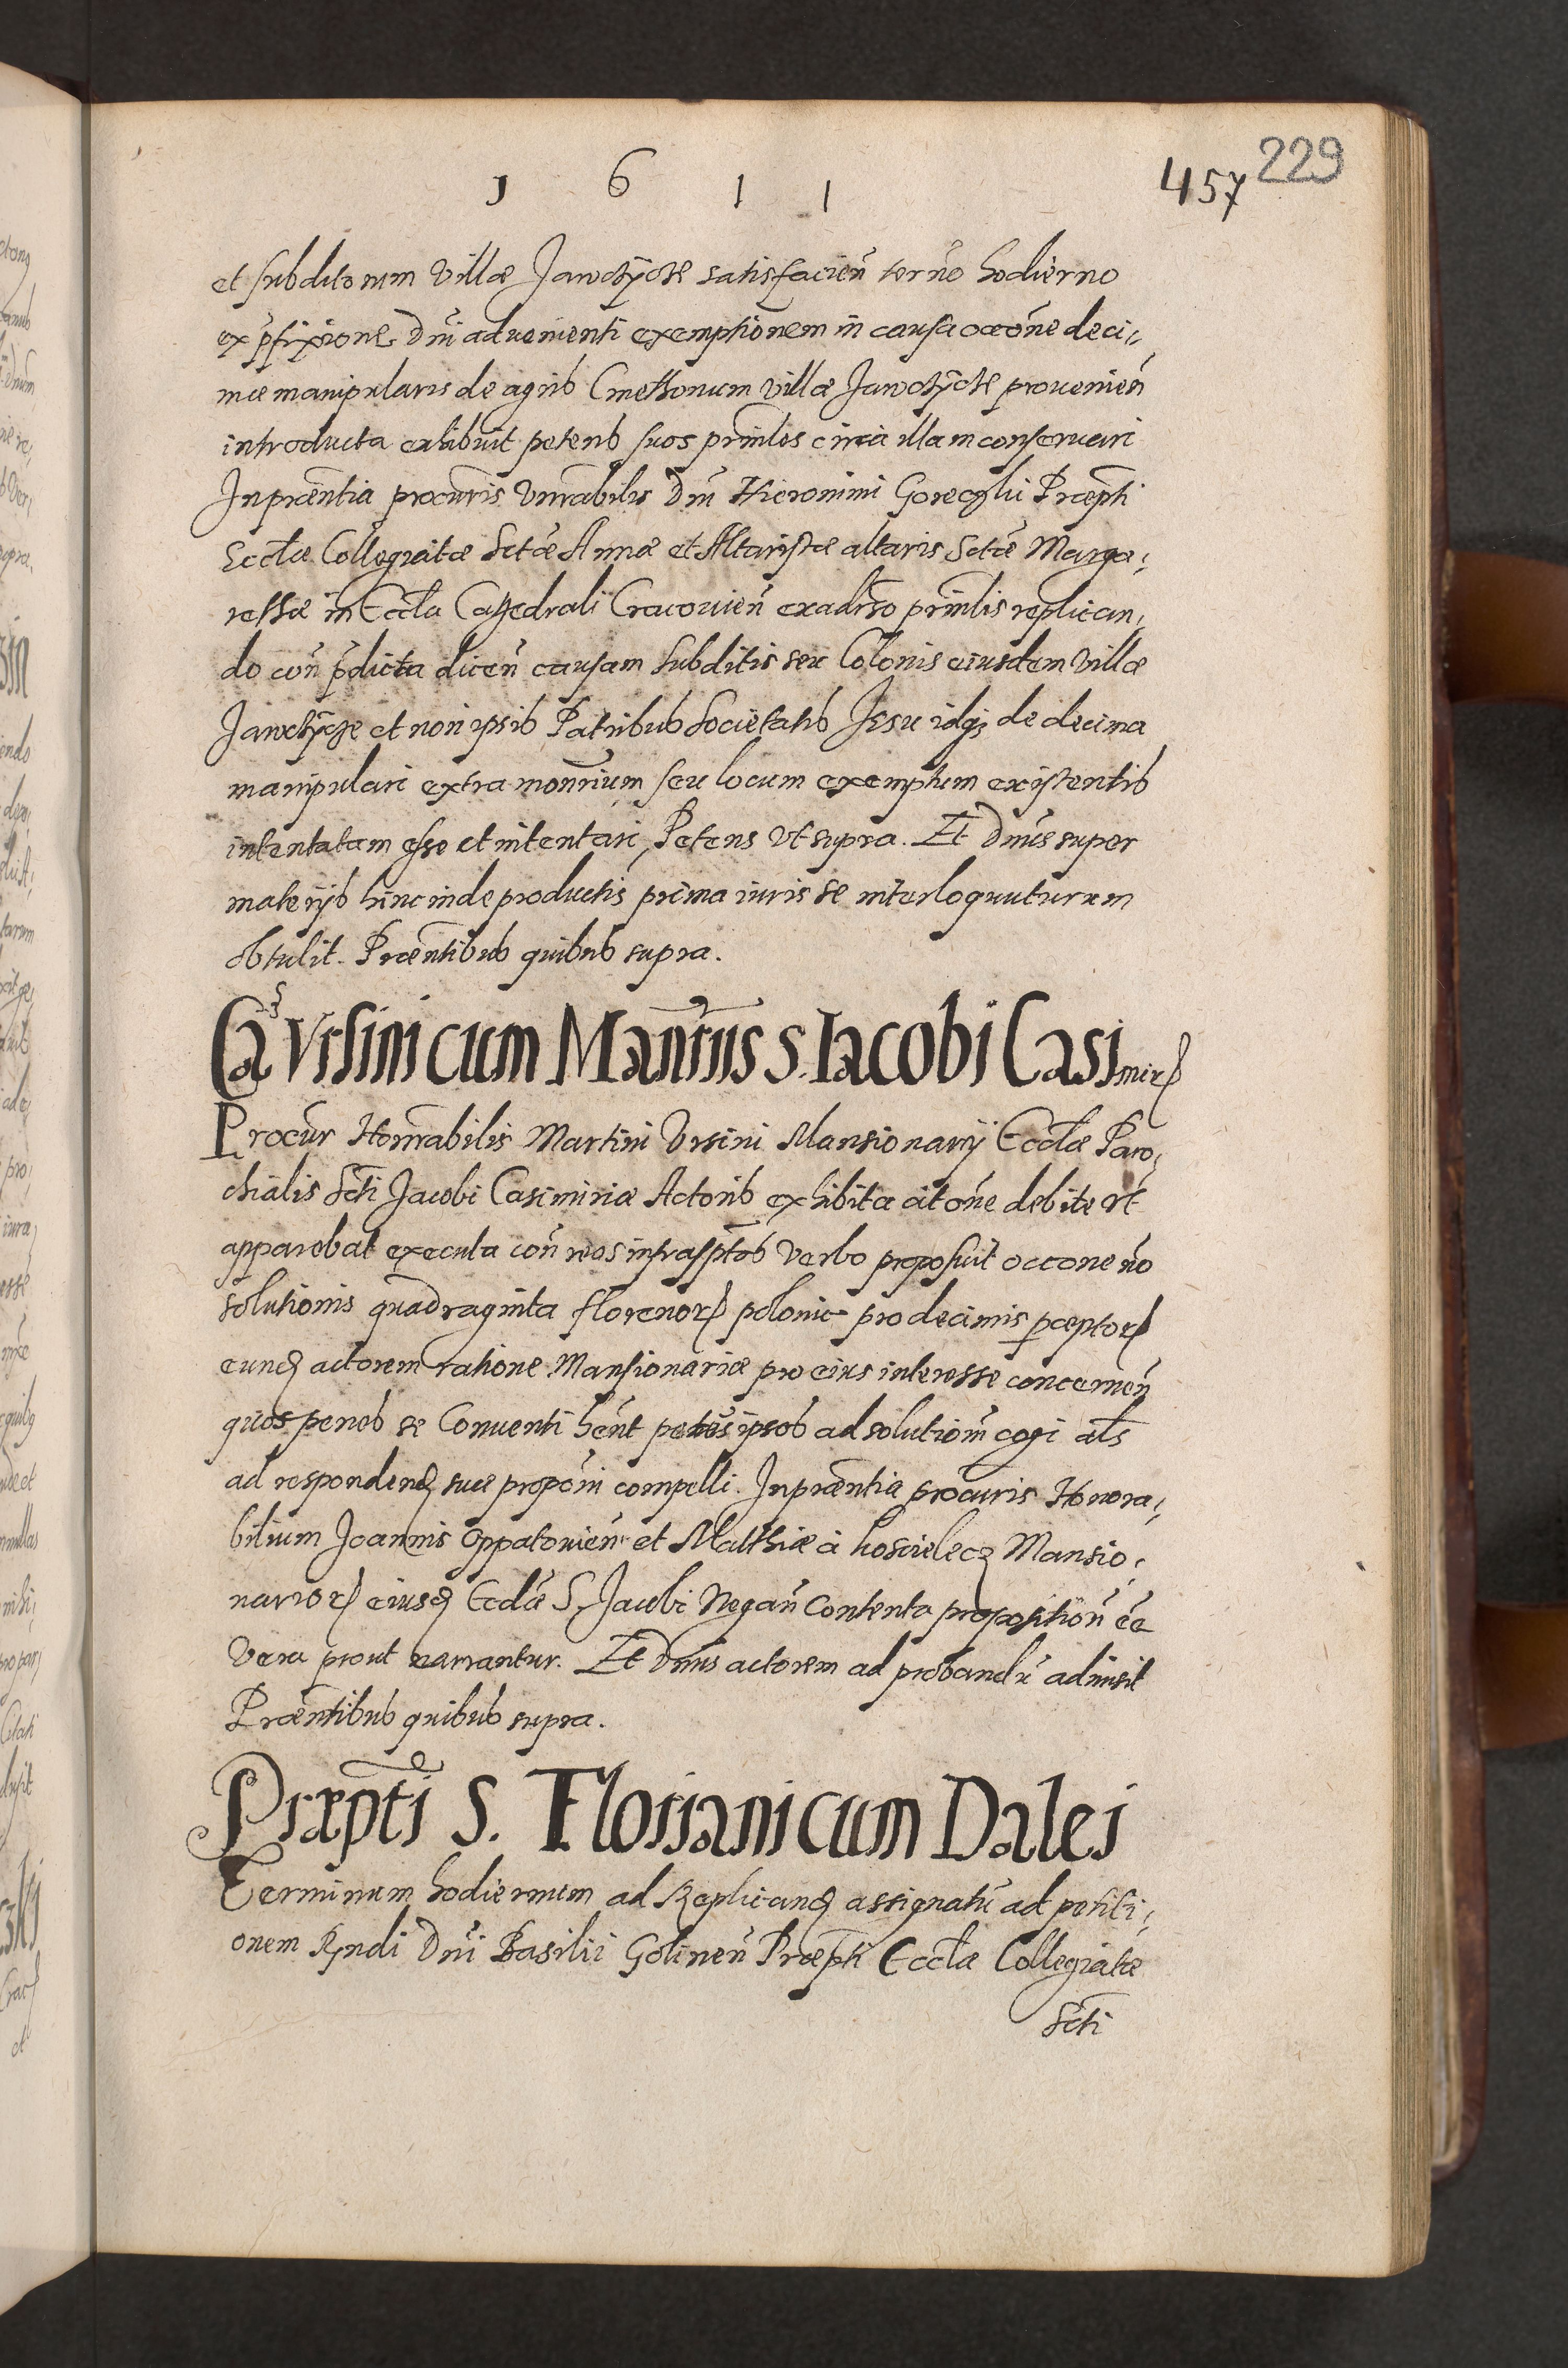 1 6 1 1
457 229
et subditorum villæ Jawczÿcze satisfacień terño hodierno
ex p̃fixione Dñi advenienti exemptionem in causa occõne deci-
mæ manipularis de agris Cmethonum villæ Jawczÿcze provenień
introducta exhibuit petens suos prinles circa illam conservari
In præntia procuris Vnrabilis Dñi Hieronimi Goreczki Præpti
Eccłæ Collegiatæ Sctæ Annæ et Altaristæ altaris Sctæ Marga-
rethæ in Eccła Cathedrali Cracovień ex adrso prinlis replican-
do coñ p̃dicta diceñ causam subditis seu Colonis eiusdem villæ
Jawczÿcze et non ipsis Patribus Societatis Jesu idq3 de decima
manipulari extra monrium seu locum exemptum existentis
intentatam esse et intentari, Petens vt supra. Et Dnus super
materijs hincinde productis prima iuris se interloquuturum
obtulit. Præntibus quibus supra.
Cã Vrsini cum Manrijs S. Iacobi Casimir
Procur Honrabilis Martini Vrsini Mansionarij Eccłæ Paro-
chialis Scti Jacobi Casimiriæ Actoris exhibita citone debite vt
apparebat executa coñ reos infrasptos verbo proposuit occone no
solutionis quadraginta florenor polonic pro decimis perceptor
eund actorem ratione Mansionariæ pro eius interesse concerneñ
quos penes se Conventi hent petens ipsos ad solutiom cogi als
ad respondend suæ proponi compelli. In præntia procuris Honora-
bilium Joannis Oppatovień et Matthiæ à koscielecz Mansio-
narior eiusd Eccłæ S. Jacobi Negañ Contenta propositioñ ee
vera prout narrantur. Et Dnus actorem ad probandũ admisit
Præntibus quibus supra.
Præpti S. Floriani cum Dalei
Terminum hodiernum ad Replicand assignatũ ad petiti-
onem Rndi Dñi Basilii Golineñ Præpti Eccłæ Collegiatæ
Scti